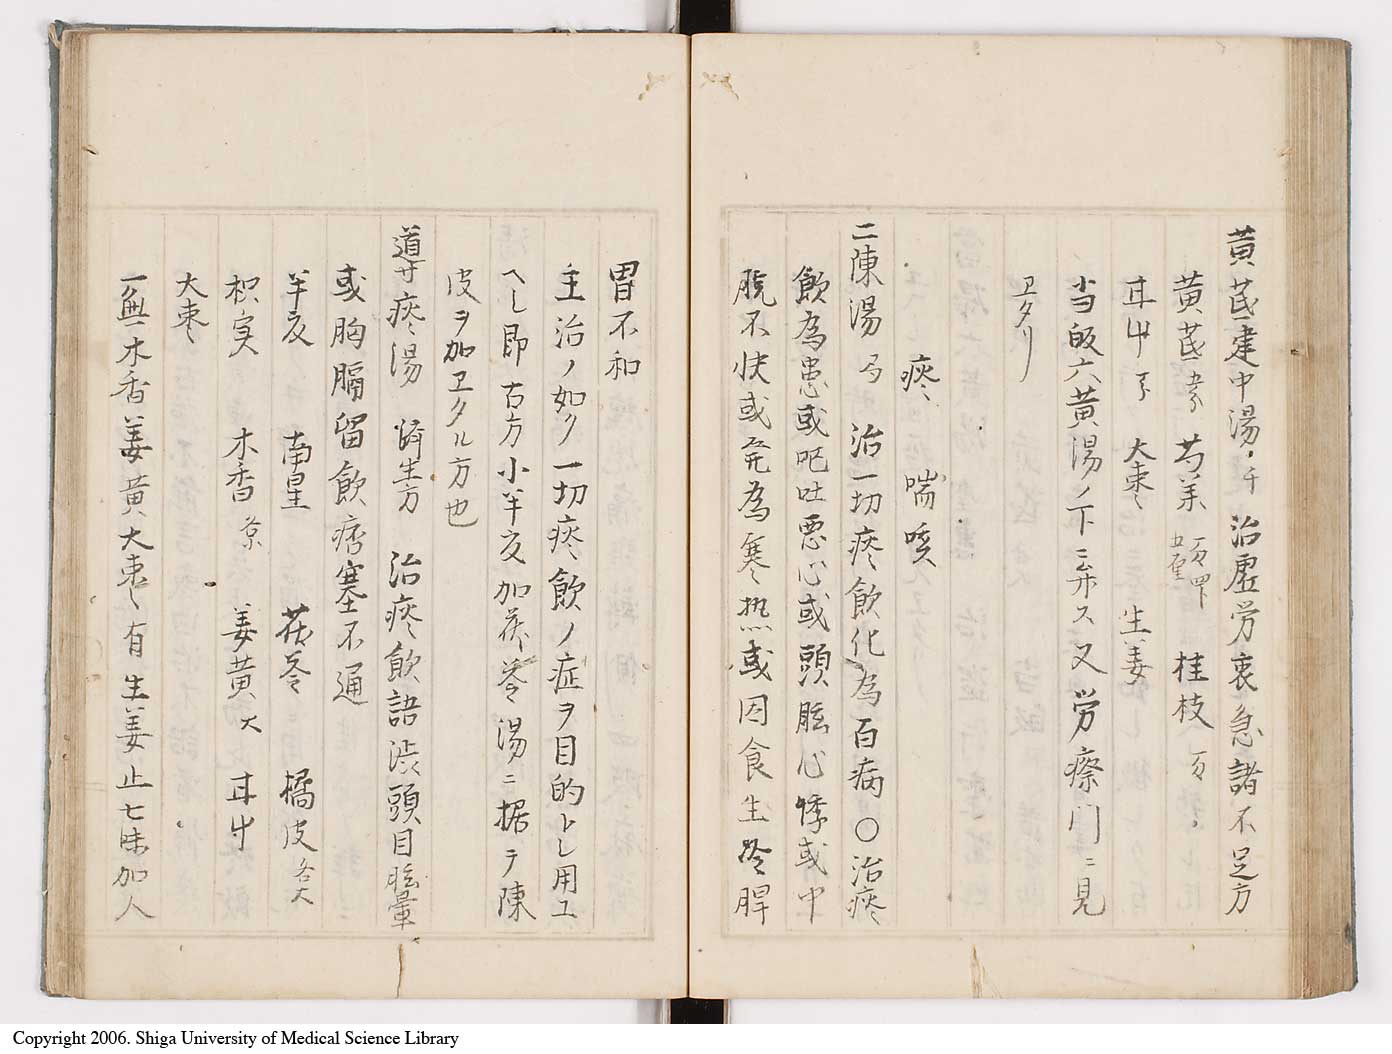 黄芪建中湯 千 治虚労裏急諸不足方
黄芪 芍薬 桂枝
甘艸 大棗 生姜
当皈六黄湯ノ下ニ弁ス又労瘵門ニ見
ヱタリ
痰 喘咳
二陳湯 局 治一切痰飲化為百病〇治痰
飲為患或吧吐悪心或頭眩心悸或中
脘不快或発為寒热或因食生冷脾
胃不和
主治ノ如ク一切痰飲ノ症ヲ目的トし用ユ
へし即古方小半夏加茯苓湯ニ据テ陳
皮ヲ加ヱタル方也
導痰湯 済生方 治痰飲語渋頭目眩暈
或胸膈留飲痞塞不通
半夏 南星 茯苓 橘皮各大
枳実 木香 姜黄大 甘艸
大棗
一無木香姜黄大棗有生姜止七味加人
Copyright 2006. Shiga University of Medical Science Library